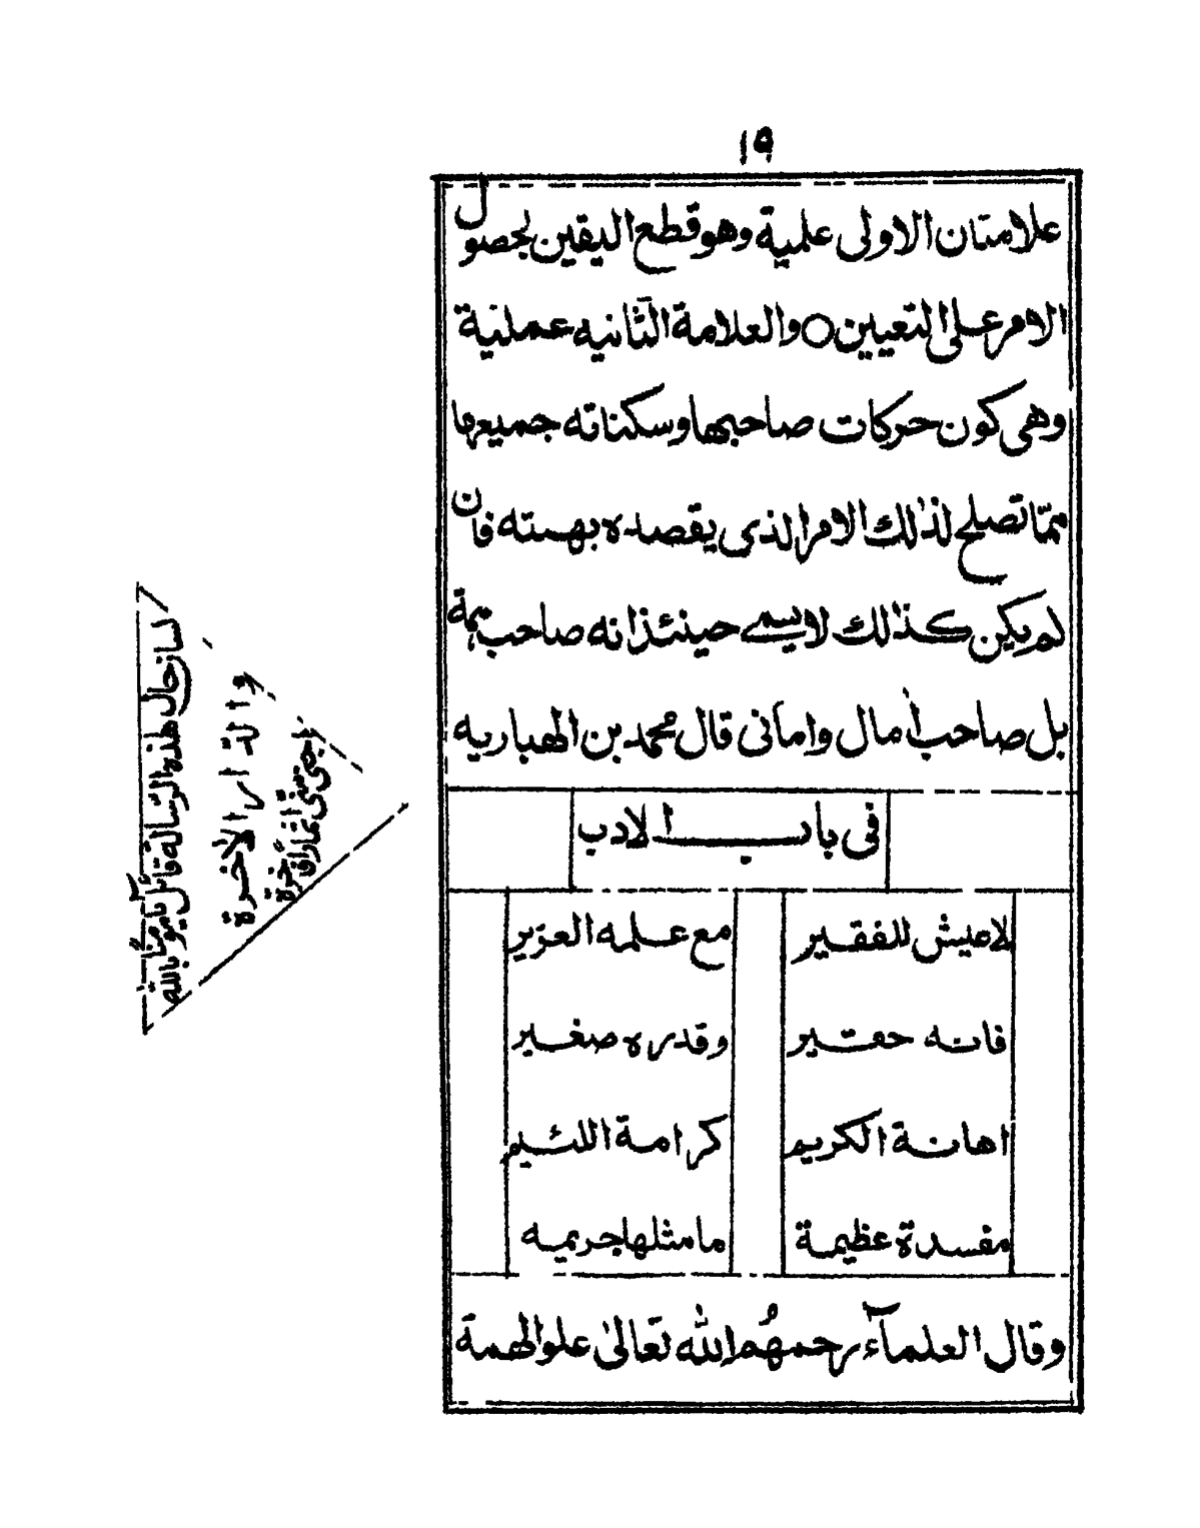 ١٩
علامتان الاولى علمية وهو قطع اليقين لحصول
الامر على التعيين ○ والعلامة الثانيه عملية
وهى كون حركات صاحبها وسكناته جميعها
ممّا تصلح لذٰلك الامر الذى يقصده بهمته فان
لم يكن كذٰلك لا يسمى حينئذ انه صاحب همة
بل صاحب اٰمال وامانى قال محمد بن الهباريه
فى باب الادب
لا عيش للفقير مع علمه العزيز
فانه حقير وقدره صغير
اهانة الكريم كرامة اللئيم
مفسدة عظيمة ما مثلها جريمه
وقال العلماۤء رحمهُم الله تعالىٰ علو الهمة
لسان حال هذه الرسالة قائل
والدار الاٰخرة